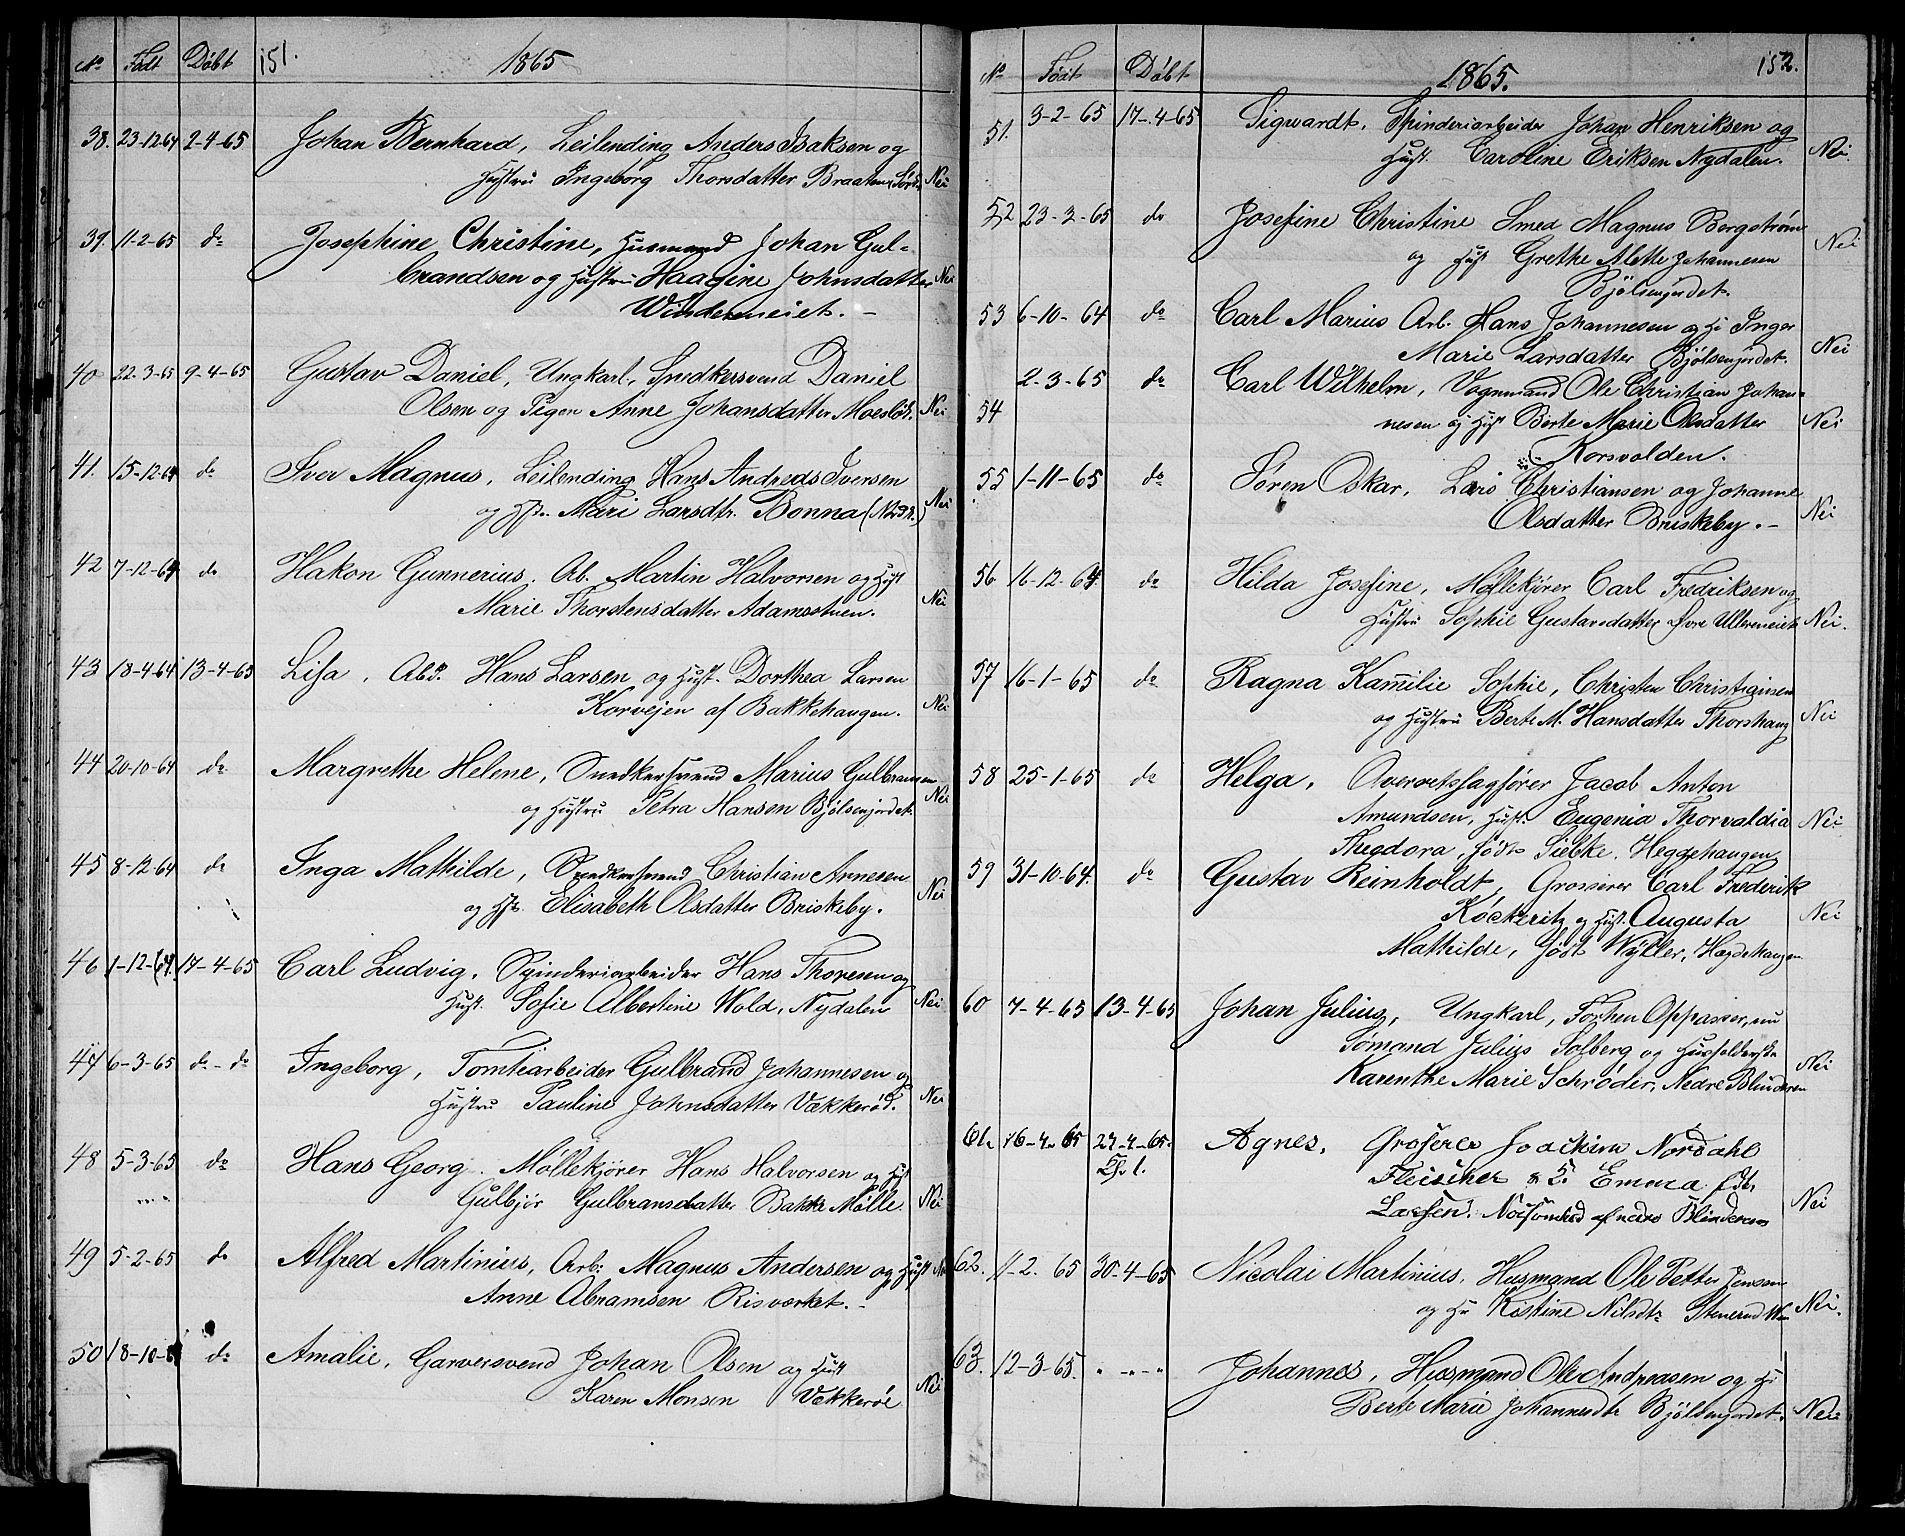 No Født Døbt 151. 1865
38. 23-12-64 2-4-65 Johan Bernhard, Leilending Anders Isaksen og
Hustru Ingeborg Thorsdatter Braaten (Sørk. Nei
39. 11-2-65 do Josephine Christine, Husmand Johan Gul-
brandsen og Hustru Haagine Johnsdatter Nei
Windereneiet. -
40 22-3-65 9-4-65 Gustav Daniel, Ungkarl, Snedkersvend Daniel
Olsen og Pigen Anne Johansdatter Nei
41. 15-12-64 do Iver Magnus, Leilending Hans Andreds Iversen
og Hstr. Mari Larsdtr. Bonna Nei
42 7-12-64 do Hakon Gunnerius. Ab. Martin Halvorsen og Hust
Marie Thorstensdatter Adamsstuen. Nei
43 18-4-64 13-4-65 Lisa, Abd. Hans Larsen og Hust. Dorthea Larsen
Korvejen af Bakkehaugen. Nei
44 20-10-64 do Margrethe Helene, Snedkersvend Marius Gulbransen
og Hustru Petra Hansen Bjølsenjordet. Nei
45 8-12-64 do Inga Mathilde, Snedkersvend Christian Arnesen
og Hstr. Elisabeth Olsdatter Briskeby. Nei
46 1-12-64. 17-4-65 Carl Ludvig. Spinderiarbeider Hans Thoresen og
Hust. Sofie Albertine Wold, Nydalen Nei
47 6-3-65 do - do Ingeborg, Tomtearbeider Gulbrand Johannesen og
Hustru Pauline Johnsdatter Vækkerød. Nei
48 5-3-65 do Hans Georg. Møllekjører Hans Halvorsen og Hst
Gulbjør Gulbransdatter Bakke Mølle. Nei
49 5-2-65 do Alfred Martinius, Arb: Magnus Andersen og Hust Nei
Anne Abramsen Risværket. -
50 18-10-64 do Amalie, Garversvend Johan Olsen og Hust
Karen Monsen Vækkerøe Nei
No Født Døbt 1865. 152.
51. 3-2-65 17-4-65 Sigwardt. Spinderiarbeider Johan Henriksen og
Hust. Caroline Eriksen Nydalen. Nei.
52 23-2-65 do Josefine Christine Smed Magnus Bergstrøm
og Hust Grethe Alette Johannesen Nei
Bjølsenjordet.
53 6-10-64 do Carl Marius Arb. Hans Johannesen og Hu Inger
Marie Larsdatter Bjølsenjordet. Nei
54 2-3-65 do Carl Wilhelm, Vognmand Ole Christian Johan-
nesen og Hust Berte Marie Olsdatter Nei
Korsvolden.
55 1-11-65 do Søren Oskar, Lars Christiansen og Johanne
Olsdatter Briskeby. - Nei
56 16-12-64. do Hilda Josefine, Møllekjører Carl Fredriksen og
Hustru Sophie Gustavsdatter Øvre Ullereneiet Nei.
57 16-1-65 do Ragna Kamilie Sophie, Christen Christiansen
og Hustru Berte M. Hansdatter Thorshaug Nei
58 25-1-65 do Helga, Overretssagfører Jacob Anton
Amundsen, Hust. Eugenia Thorvaldia Nei
Thedora, født Siebke. Hegdehaugen
59 31-10-64. do Gustav Reinholdt, Grosserer Carl Frederik
Köckeritz og Hust. Augusta Nei
Mathilde, født Wyller, Hegdehaugen
60 7-4-65 13-4-65 Johan Julius, Ungkarl, Forhen Oppasser, nu
Sømand Julius Solberg og Husholderske
Karenthe Marie Schrøder, Nedre Blinderen Nei
61. 16-4-65 27-4-65. Agnes. Grosserer Joachim Nordahl
Fleischer & H. Emma født
Lassen. Noisomhed af nedre Blinderen Nei
62. 11-2-65 30-4-65 Nicolai Martinius, Husmand Ole Petter Jensen
og Hu Kistine Nilsdtr Stenerud Nei.
63. 12-3-65. " - " - " Johannes, Husmand Ole Andreasen og Hu
Berte Marie Johannesdtr Bjølsenjordet. Nei